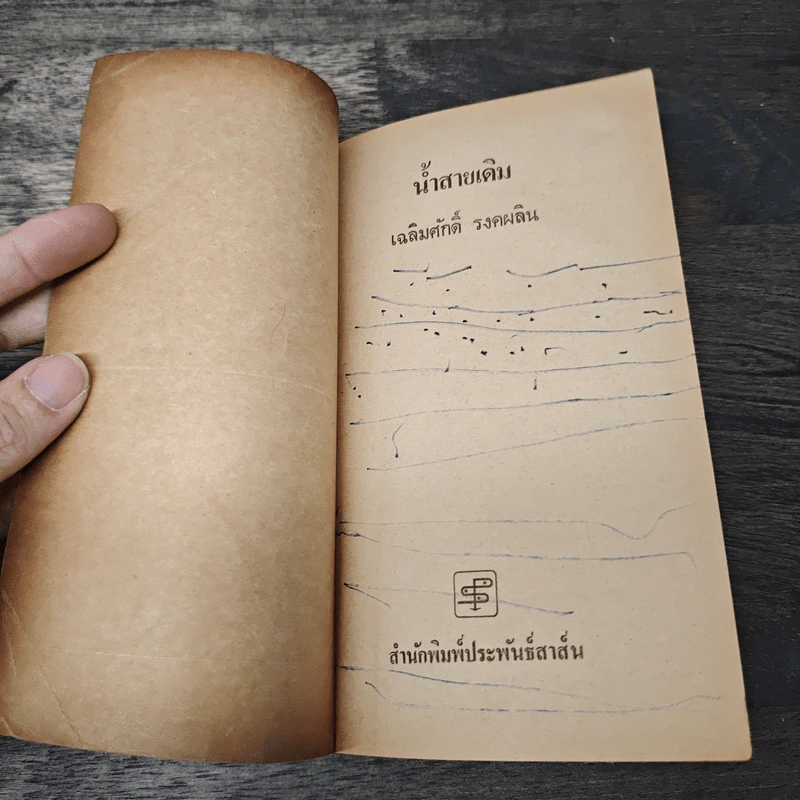 น้ำสายเดิม
เฉลิมศักดิ์ รงคผลิน
สำนักพิมพ์ประพันธ์สาส์น